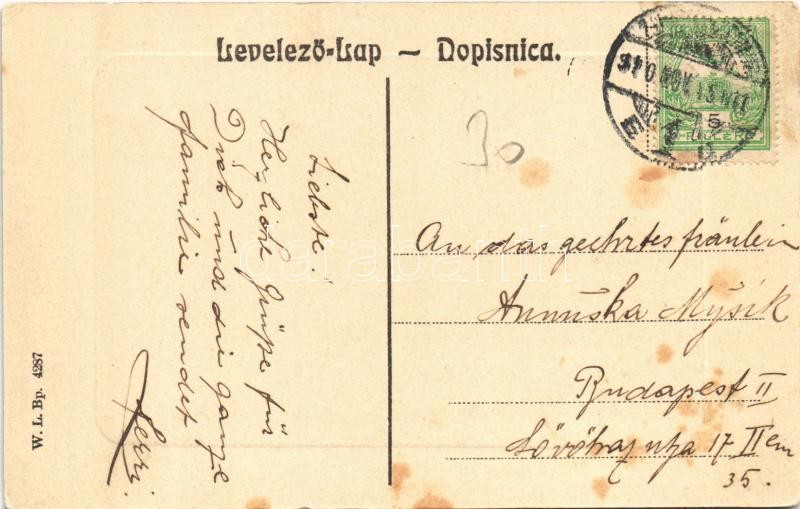 Levelező-Lap – Dopisnica.
30
5
FILLÉR
Liebste!
Herzliche Grüße für
Dich und die ganze
Familie sendet
Ferri.
An das geehrtes fräulein
Annuska Mysik
Budapest II
utza 17 II em
35.
W. L. Bp. 4287
darabanth